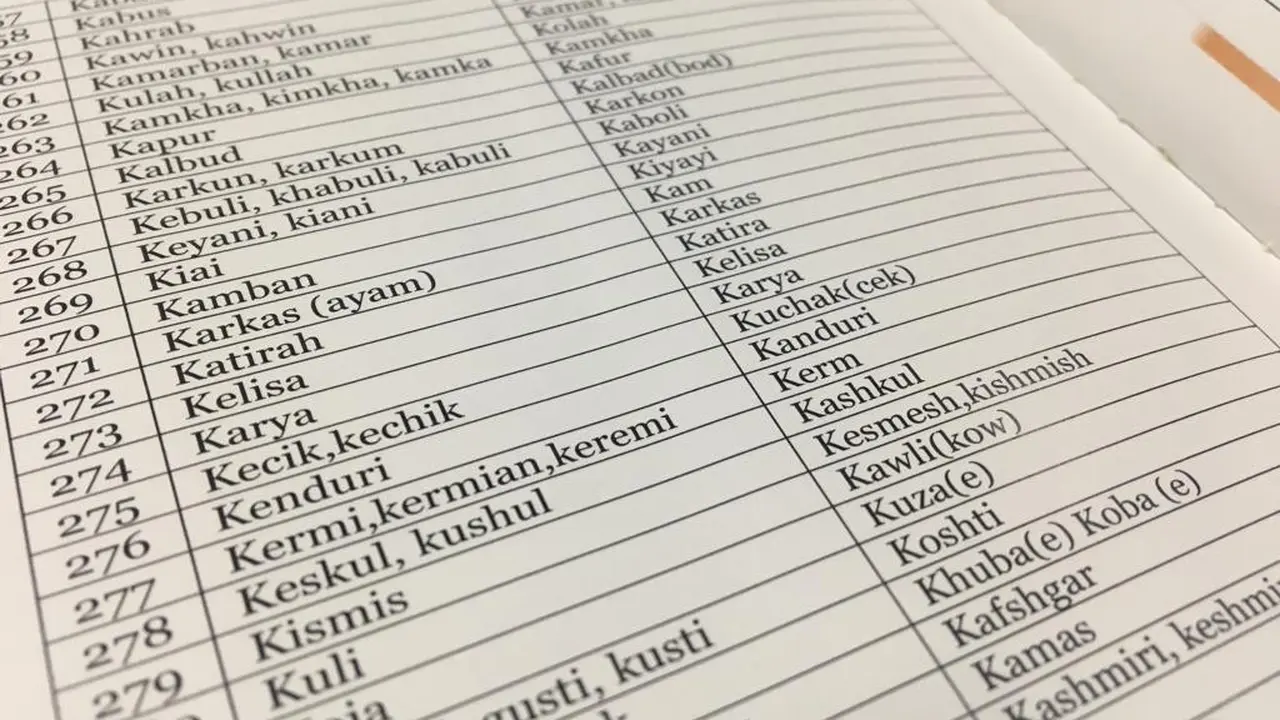 57
58 Kabus
59 Kahrab
60 Kawin, kahwin
61 Kamarban, kamar Kamar,
262 Kulah, kullah Kolah
263 Kamkha, kimkha, kamka Kamkha
264 Kapur Kafur
265 Kalbud Kalbad(bod)
266 Karkun, karkum Karkon
267 Kebuli, khabuli, kabuli Kaboli
268 Keyani, kiani Kayani
269 Kiai Kiyayi
270 Kamban Kam
271 Karkas (ayam) Karkas
272 Katirah Katira
273 Kelisa Kelisa
274 Karya Karya
275 Kecik,kechik Kuchak(cek)
276 Kenduri Kanduri
277 Kermi,kermian,keremi Kerm
278 Keskul, kushul Kashkul
279 Kismis Kesmesh,kishmish
Kuli Kawli(kow)
Kuza(e)
gusti, kusti Koshti
Khuba(e) Koba (e)
Kafshgar
Kamas
Kashmiri, keshmi